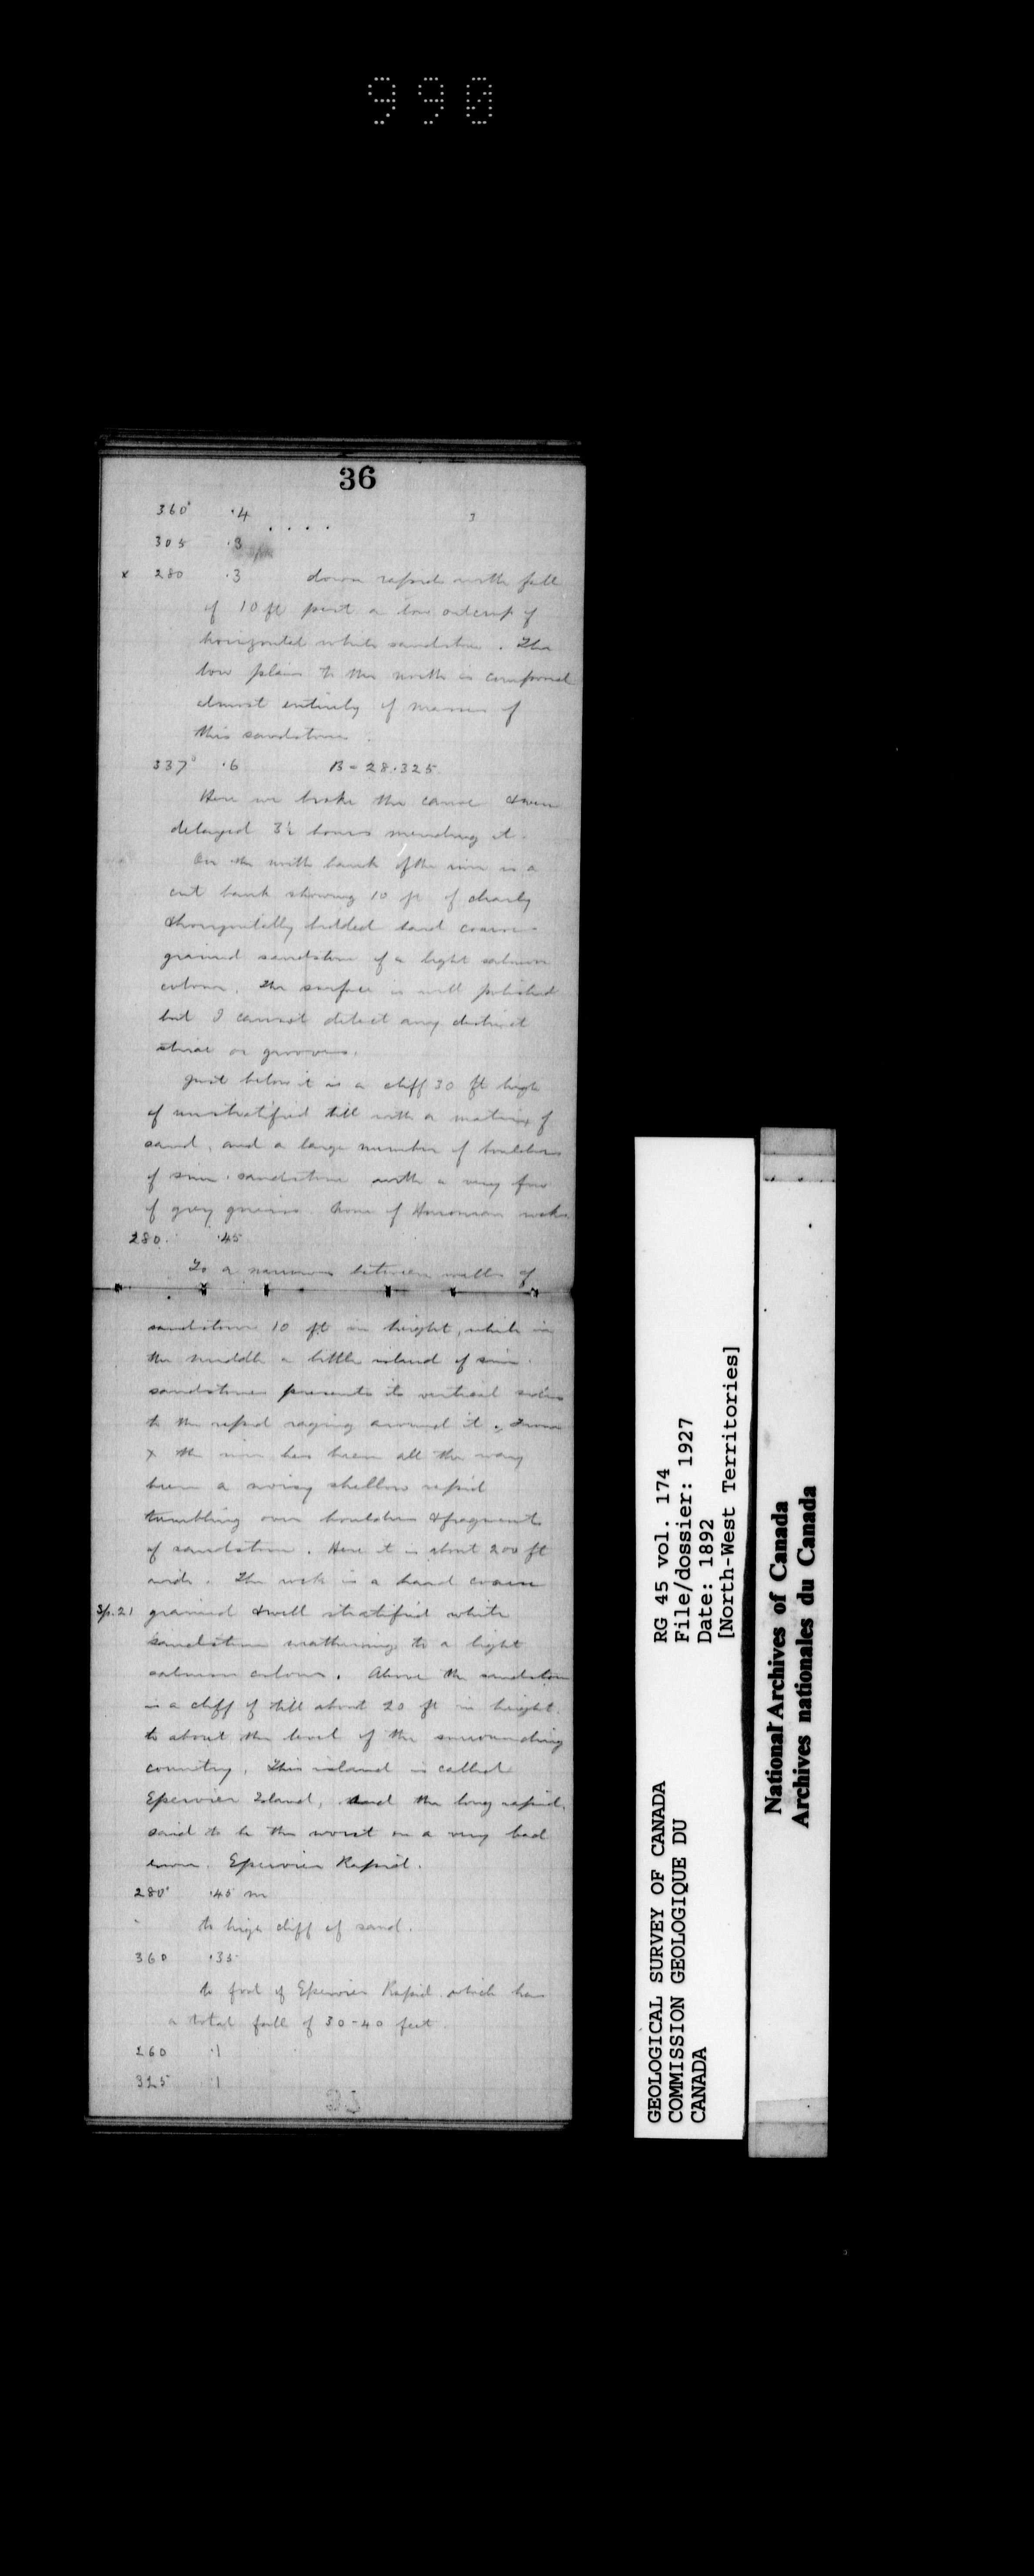 990
36
360° .4
305 .3
x 280 .3 down rapid with fall
of 10 ft past a low outcrop of
horizontal white sandstone. The
low plain to the north is composed
almost entirely of masses of
this sandstone.
337° .6 B = 28.325
Here we broke the canoe & were
delayed 3½ hours mending it.
On the north bank of the river is a
cut bank showing 10 ft of clearly
& horizontally bedded hard coarse
grained sandstone of a light salmon
colour. The surface is well polished
but I cannot detect any distinct
striae or grooves.
Just below it is a cliff 30 ft high
of unstratified till with a matrix of
sand, and a large number of boulders
of sim. sandstone with a very few
of grey gneiss. None of Huronian rocks
280. .45
To a narrows between walls of
sandstone 10 ft in height, while in
the middle a little island of sim.
sandstone presents its vertical sides
to the rapid raging around it. From
x the river has been all the way
been a noisy shallow rapid
tumbling over boulders & fragments
of sandstone. Here it is about 200 ft
wide. The rock is a hard coarse
Sp. 21 grained & well stratified white
sandstone weathering to a light
salmon colour. Above the sandstone
is a cliff of till about 20 ft in height
to about the level of the surrounding
country. This island is called
Epervier Island, and the long rapid,
said to be the worst on a very bad
Epervier Rapid.
280° .45 m
to high cliff of sand.
360 .35
to foot of Epervier Rapid which has
a total fall of 30-40 feet.
260 .1
325 .1
GEOLOGICAL SURVEY OF CANADA
COMMISSION GEOLOGIQUE DU
CANADA
RG 45 vol. 174
File/dossier: 1927
Date: 1892
[North-West Territories]
National Archives of Canada
Archives nationales du Canada